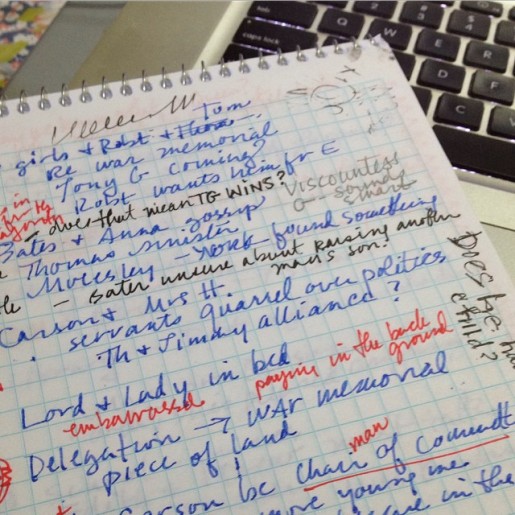 girls & Robt & Tom
Re war memorial
Tony G coming?
Robt wants him fr E
in
- does that mean TG WINS?
Viscountess
G - sounds
smart
Bates & Anna gossip
Thomas sinister
Molesley - York found something
- Bater unsure about raising another
man's son?
Carson & Mrs H
servants quarrel over politics
Th & Jimmy alliance?
Does he
child?
Lord & Lady in bed
embarrassed
paying in the back
ground
Delegation → WAR memorial
piece of land
man
Carson be Chair of Committ
young me
in the
caps lock
Q
W
E
R
A
S
D
F
Z
X
C